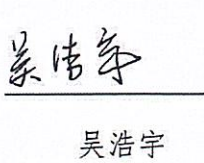 吴浩宇
吴浩宇